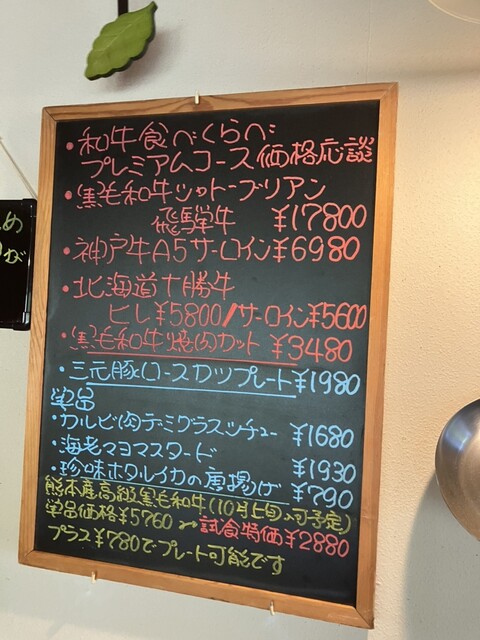 ・和牛食べくらべ
プレミアムコース価格応談
・黒毛和牛シャトーブリアン
飛騨牛 ¥17800
・神戸牛A5サーロイン¥6980
・北海道十勝牛
ヒレ¥5800/サーロイン¥5600
・黒毛和牛焼肉カット ¥3480
・三元豚ロースカツプレート¥1980
単品
・カルビ肉デミグラスシチュー ¥1680
・海老マヨマスタード ¥1930
・珍味ホタルイカの唐揚げ ¥790
熊本産高級黒毛和牛(10月上旬入り予定)
単品価格¥5760→試食特価¥2880
プラス¥780でプレート可能です
め
が